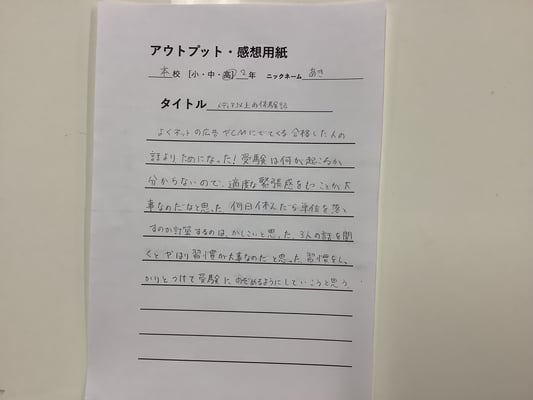 アウトプット・感想用紙
本校 [小・中・高] 2年 ニックネーム あき
タイトル 以上の体験記
よくネットの広告やCMにでてくる合格した人の
話よりためになった!受験は何が起こるか
分からないので、適度な緊張感をもつことが大
事なのだなと思った。何日休んだら単位を落と
すのか計算するのは、かしこいと思った。3人の話を聞
くとやはり習慣が大事なのだと思った。習慣をしっ
かりとつけて受験にのぞめるようにしていこうと思う